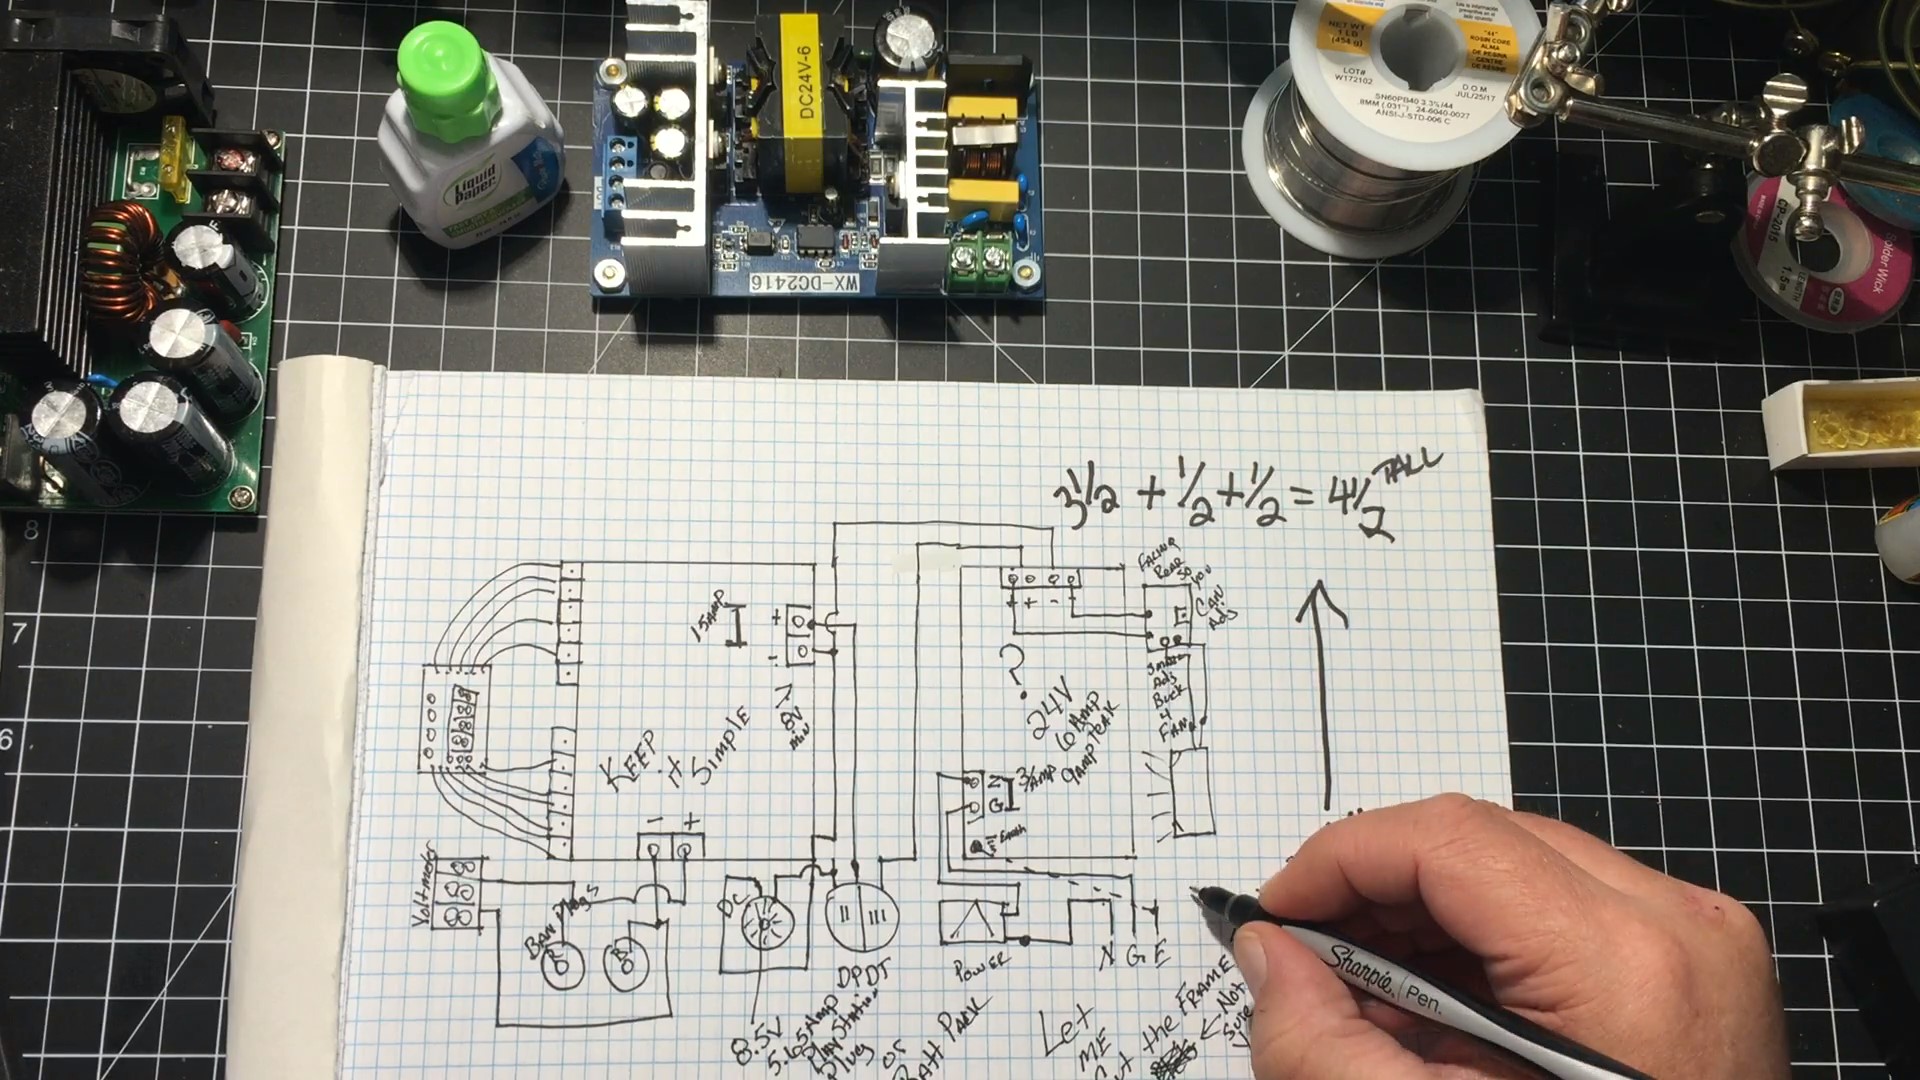 NET WT
1 LB
(454 g)
"44"
ROSIN CORE
ALMA
DE RESINA
CENTRE
DE RESINE
LOT#
W172102
D.O.M
JUL/25/17
SN60PB40 3.3%/44
8MM (.031") 24-6040-0027
ANSI-J-STD-006 C
DC24V-6
Liquid
paper
WX-DC2416
CP-2015
1.5m
LENGTH
Solder Wick
8
7
6
3 1/2 + 1/2 + 1/2 = 4 1/2 TALL
FACING
REAR SO YOU
CAN
Adj
15AMP
+
-
+ + - -
?
24V
6 AMP
9AMP PEAK
Adj
Buck
4
FAN
KEEP
it
SimplE
7.8V
min
3/AMP
G
Earth
- +
Voltmeter
BAN Plugs
B
DC
II III
DPDT
POWER
N G E
8.5V
5.65Amp
PlayStation
Plug
or
BATT PACK
Let
ME
Cut the FRAME
Not
Sure
Sharpie. Pen.